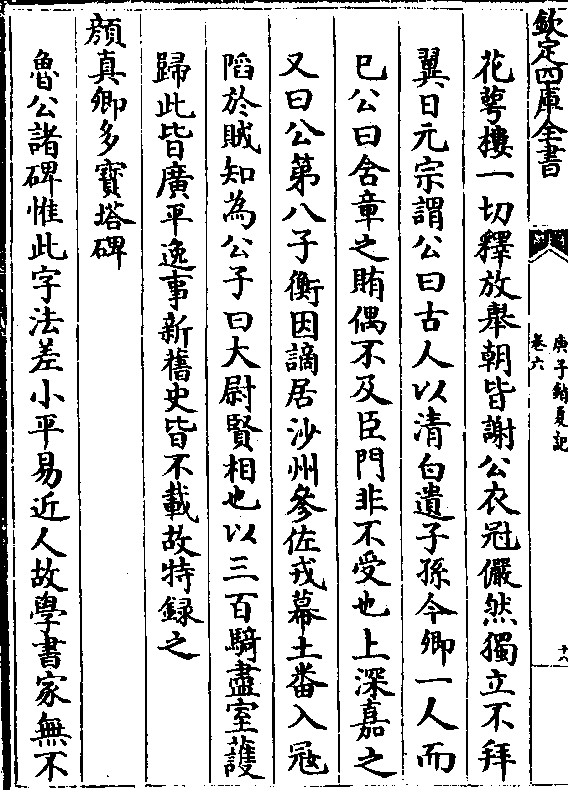 欽定四庫全書
庚子銷夏記
卷六
十八
花萼樓一切釋放舉朝皆謝公衣冠儼然獨立不拜
翼日元宗謂公曰古人以清白遺子孫今卿一人而
已公曰含章之賄偶不及臣門非不受也上深嘉之
又曰公第八子衡因謫居沙州參佐戎幕土番入冦
䧟於賊知為公子曰大尉賢相也以三百騎盡室護
歸此皆廣平逸事新舊史皆不載故特録之
顔真卿多寳塔碑
魯公諸碑惟此字法差小平易近人故學書家無不